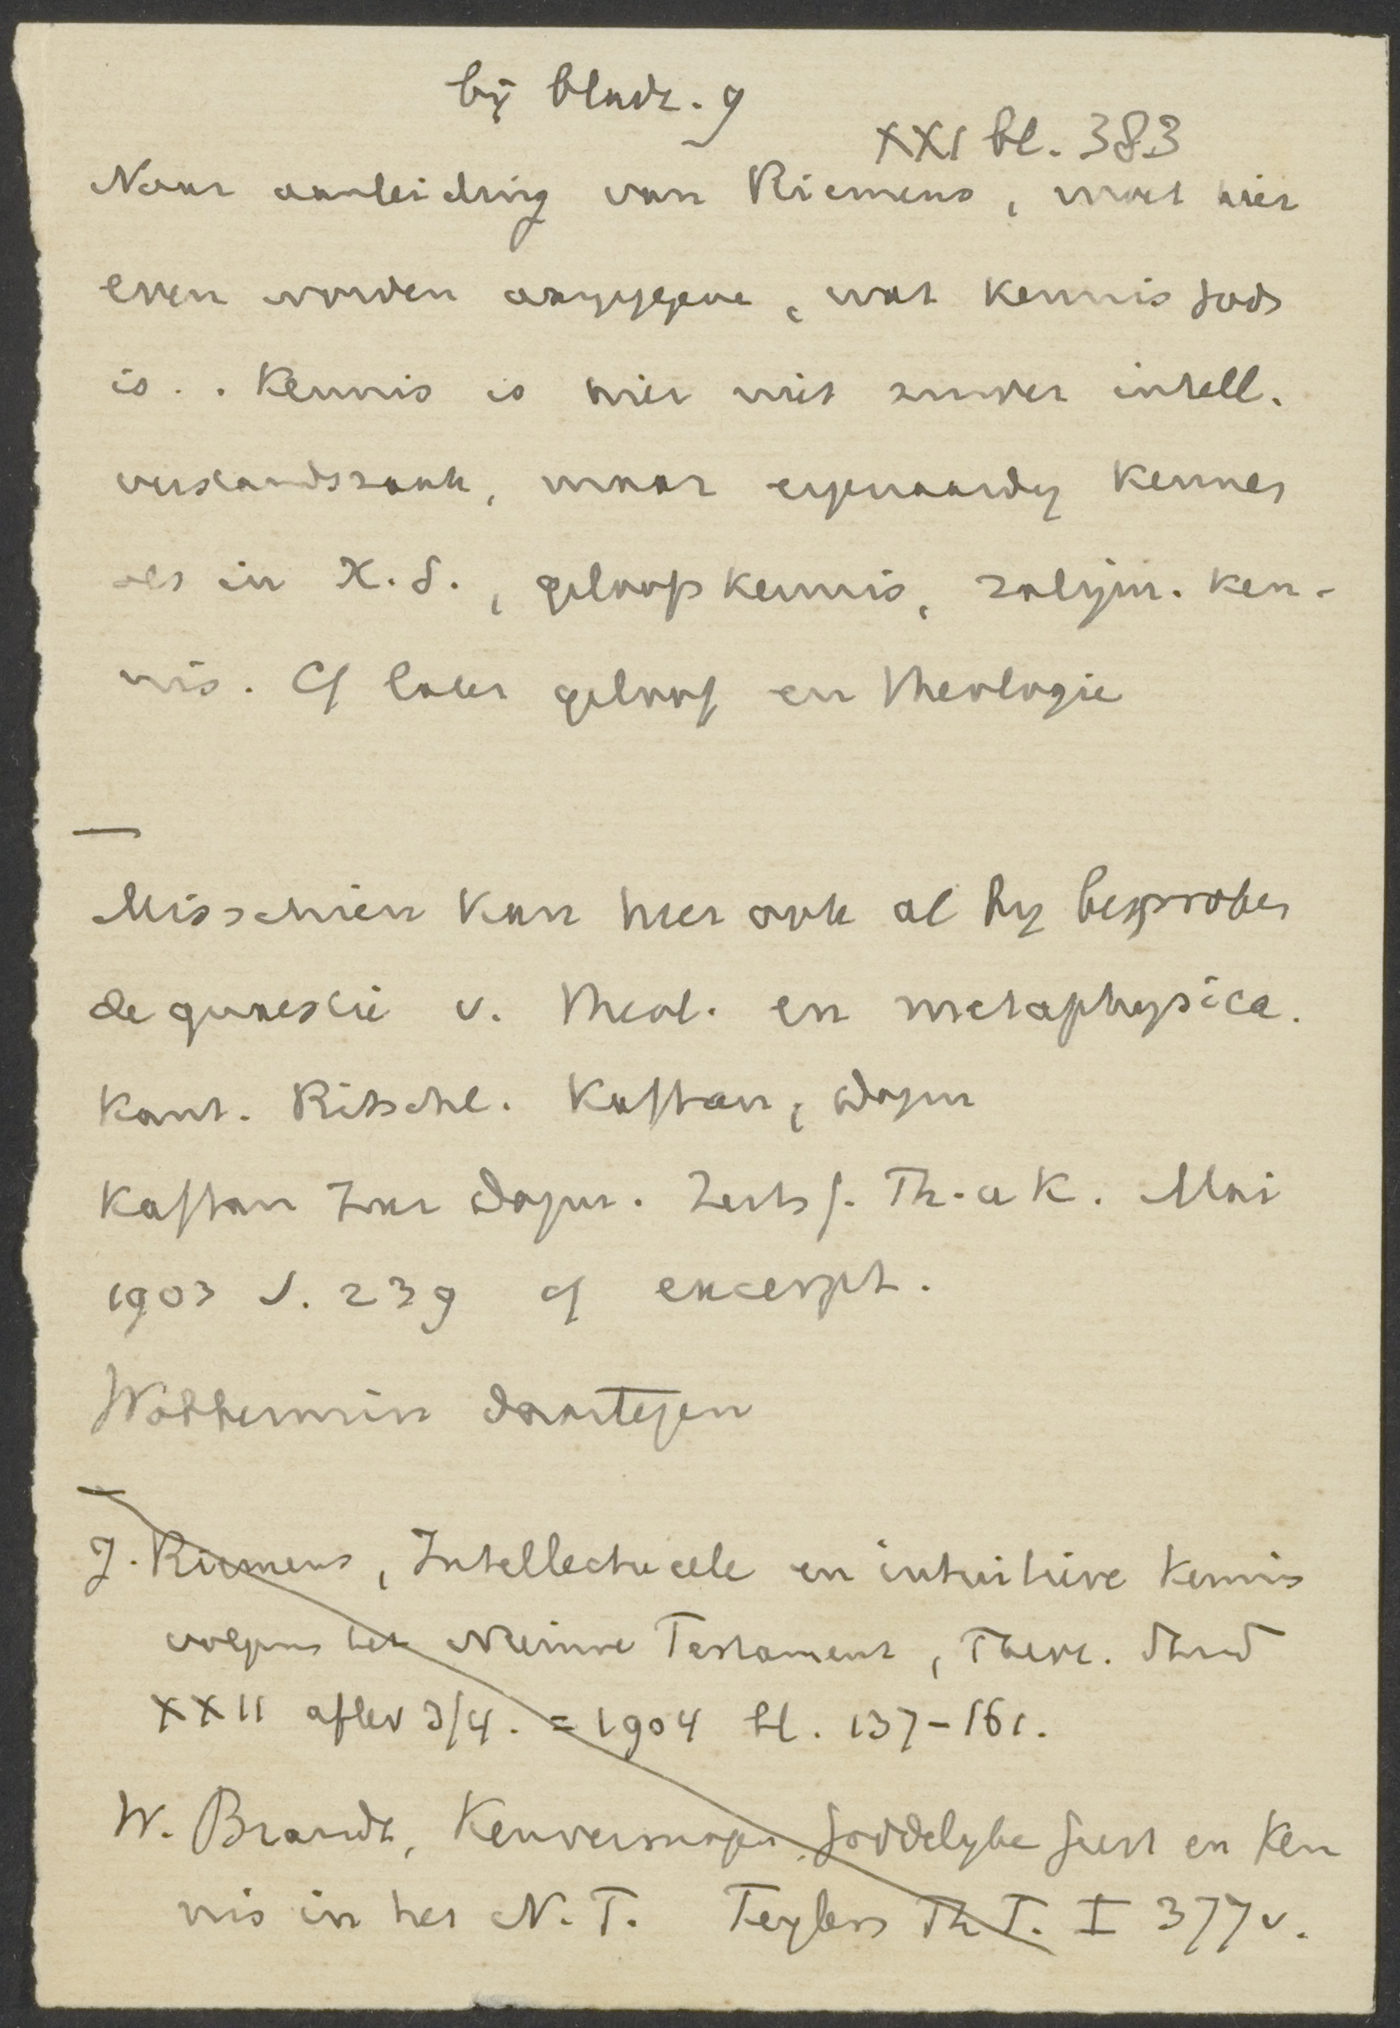 bij bladz. 9
XXI bl. 383
Naar aanleiding van Riemens, moet hier
even worden aangegeven, wat kennis Gods
is.. Kennis is hier niet zuiver intell.
verstandszaak, maar eigenaardig kennen
als in H.S., geloofskennis, zaligm. ken-
nis. Cf later geloof en theologie
Misschien kan hier ook al by besproken
de quaestie v. theol. en metaphysica.
Kant. Ritschl. Kaftan, Dogm
Kaftan Zur Dogm. Zeits f. Th. u K. Mai
1903 S. 239 cf excerpt.
Wobbermin daartegen
J. Riemens, Intellectueele en intuitieve kennis
volgens het Nieuwe Testament, Theol. Stud
XXII aflev 3/4. = 1904 bl. 137-161.
W. Brandt, Kenvermogen, Goddelyke Geest en Ken
nis in het N.T. Teylers Th T. I 377 v.